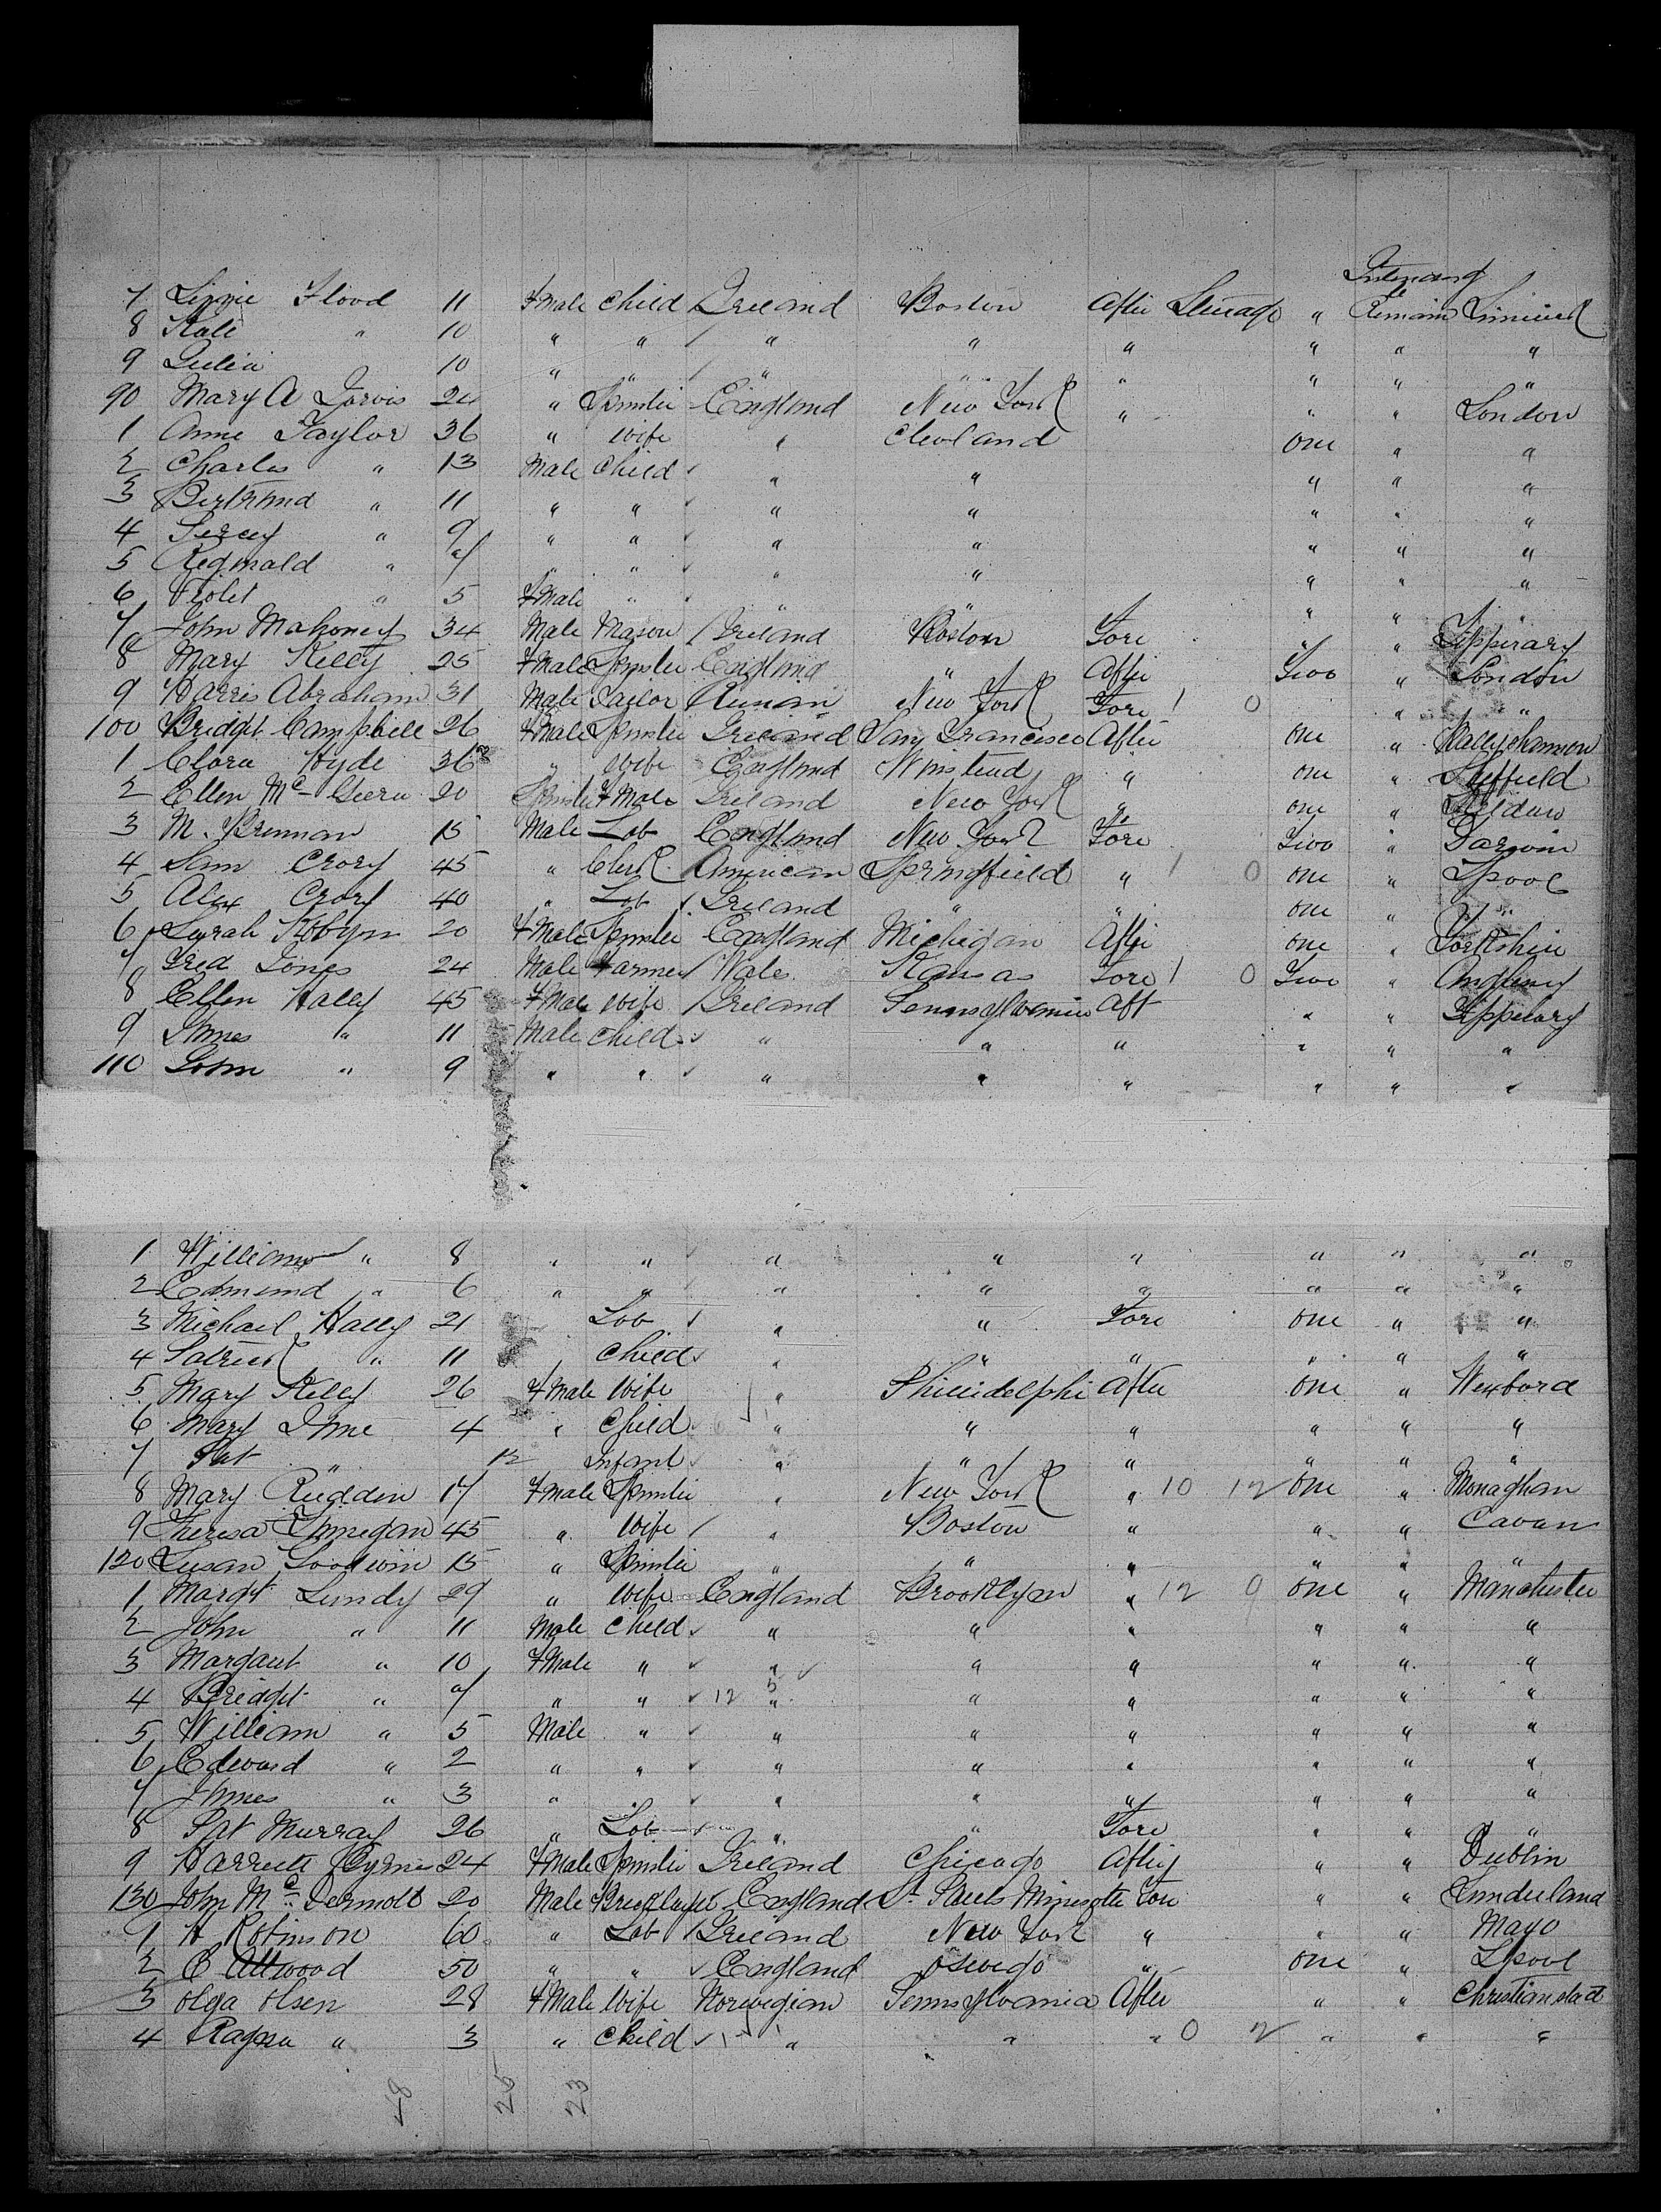 Intending
7 Lizzie Flood 11 Fmale Child Ireland Boston After Steerage " to Remain Limerick
8 Kate " 10 " " " " " " " "
9 Julia 10 " " " " " " " "
90 Mary A Jarvis 24 " Spinster England New York " " " London
1 Anne Taylor 36 " Wife " Clevland one " "
2 Charles " 13 Male Child " " " " "
3 Bertrand " 11 " " " " " " "
4 Percy " 9 " " " " " " "
5 Reginald " 7 " " " " " " "
6 Violet " 5 Fmale " " " " " "
7 John Mahoney 34 Male Mason Ireland Boston Fore " " Tipperary
8 Mary Kelly 25 Fmale Spinster England " After Two " London
9 Harris Abraham 31 Male Tailor Russian New York Fore 1 0 " "
100 Bridget Campbell 26 Fmale Spinster Ireland San Francisco After one " Ballyshannon
1 Clara Hyde 36 " Wife England Winstead " one " Sheffield
2 Ellen Mc 20 Spinster Fmale Ireland New York " one " Kildare
3 M. Brennan 15 Male Lab England New York Fore Two " Darwin
4 Sam Crory 45 " Clerk American Springfield " 1 0 one " Lpool
5 Alex Crory 40 " Lab Ireland " " one " "
6 Sarah Robyn 20 Fmale Spinster England Michigan After one " Yorkshire
7 Fred Jones 24 Male Farmer Wales Kansas Fore 1 0 Two " Anglesey
8 Ellen Hally 45 Fmale Wife Ireland Pennsylvania Aft " " Tipperary
9 James " 11 Male Child " " " " " "
110 John " 9 " " " " " " " "
1 William " 8 " " " " " " " "
2 Edmund " 6 " " " " " " " "
3 Michael Hally 21 Lab " " Fore one " "
4 Patrick " 11 Child " " " " " "
5 Mary Kelly 26 Fmale Wife " Philidelphi After one " Wexford
6 Mary Jane 4 " Child " " " " " "
7 Pat " 12 Infant " " " " " "
8 Mary Rudden 17 Fmale Spinster " New York " 10 12 one " Monaghan
9 Theresa Finnegan 45 " Wife " Boston " " " Cavan
120 Susan Goodwin 15 " Spinster " " " " " "
1 Margt Lundy 29 " Wife England Brooklyn " 12 9 one " Manchester
2 John " 11 Male Child " " " " " "
3 Margaret " 10 Fmale " " " " " " "
4 Bridget " 7 " " 12 5 " " " " " "
5 William " 5 Male " " " " " " "
6 Edward " 2 " " " " " " " "
7 James " 3 " " " " " " " "
8 Pat Murray 26 " Lab " " Fore " " "
9 Harriett Byrne 24 Fmale Spinster Ireland Chicago After " " Dublin
130 John Mc Dermott 20 Male Bricklayer England St Pauls Minesota Fore " " Sunderland
1 H Robinson 60 " Lab Ireland New York " " " Mayo
2 E Attwood 50 " " England Oswego " one " Lpool
3 Olga Olsen 28 Fmale Wife Norwegian Pennsylvania After " " Christianstadt
4 " 3 " Child " " " 0 2 " " "
48 25 23